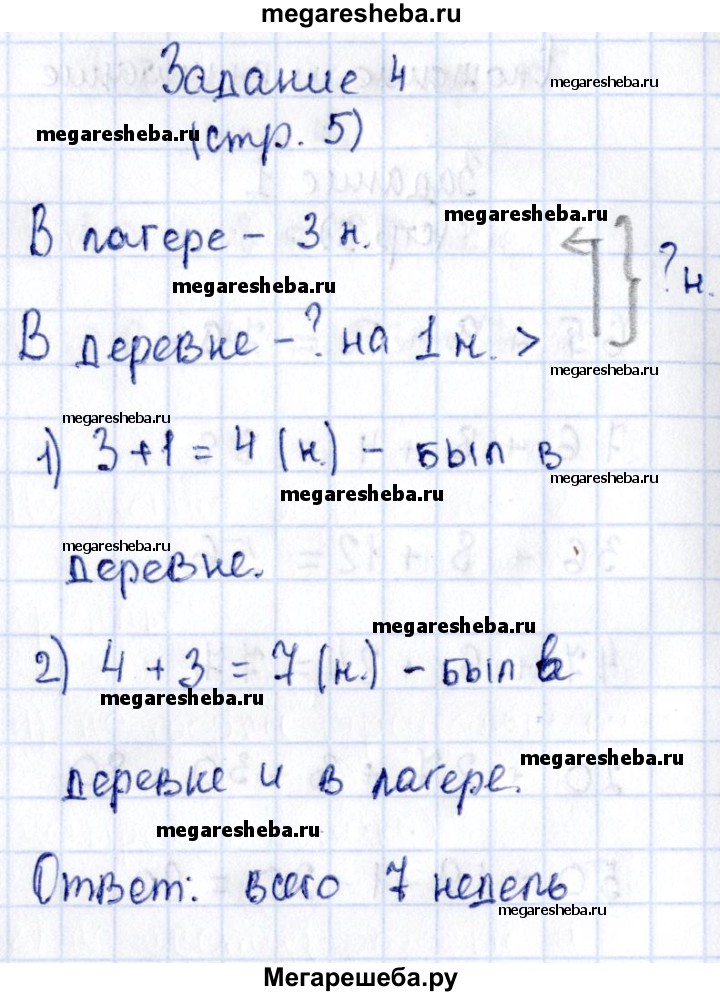 megaresheba.ru
Задание 4
megaresheba.ru
megaresheba.ru
(стр. 5)
megaresheba.ru
В лагере – 3 н.
? н.
megaresheba.ru
В деревне – ? на 1 н. >
megaresheba.ru
megaresheba.ru
1) 3 + 1 = 4 (н.) – был в
megaresheba.ru
megaresheba.ru
деревне.
megaresheba.ru
2) 4 + 3 = 7 (н.) – был в
megaresheba.ru
megaresheba.ru
деревне и в лагере.
megaresheba.ru
Ответ: всего 7 недель
megaresheba.ru
Мегарешеба.ру